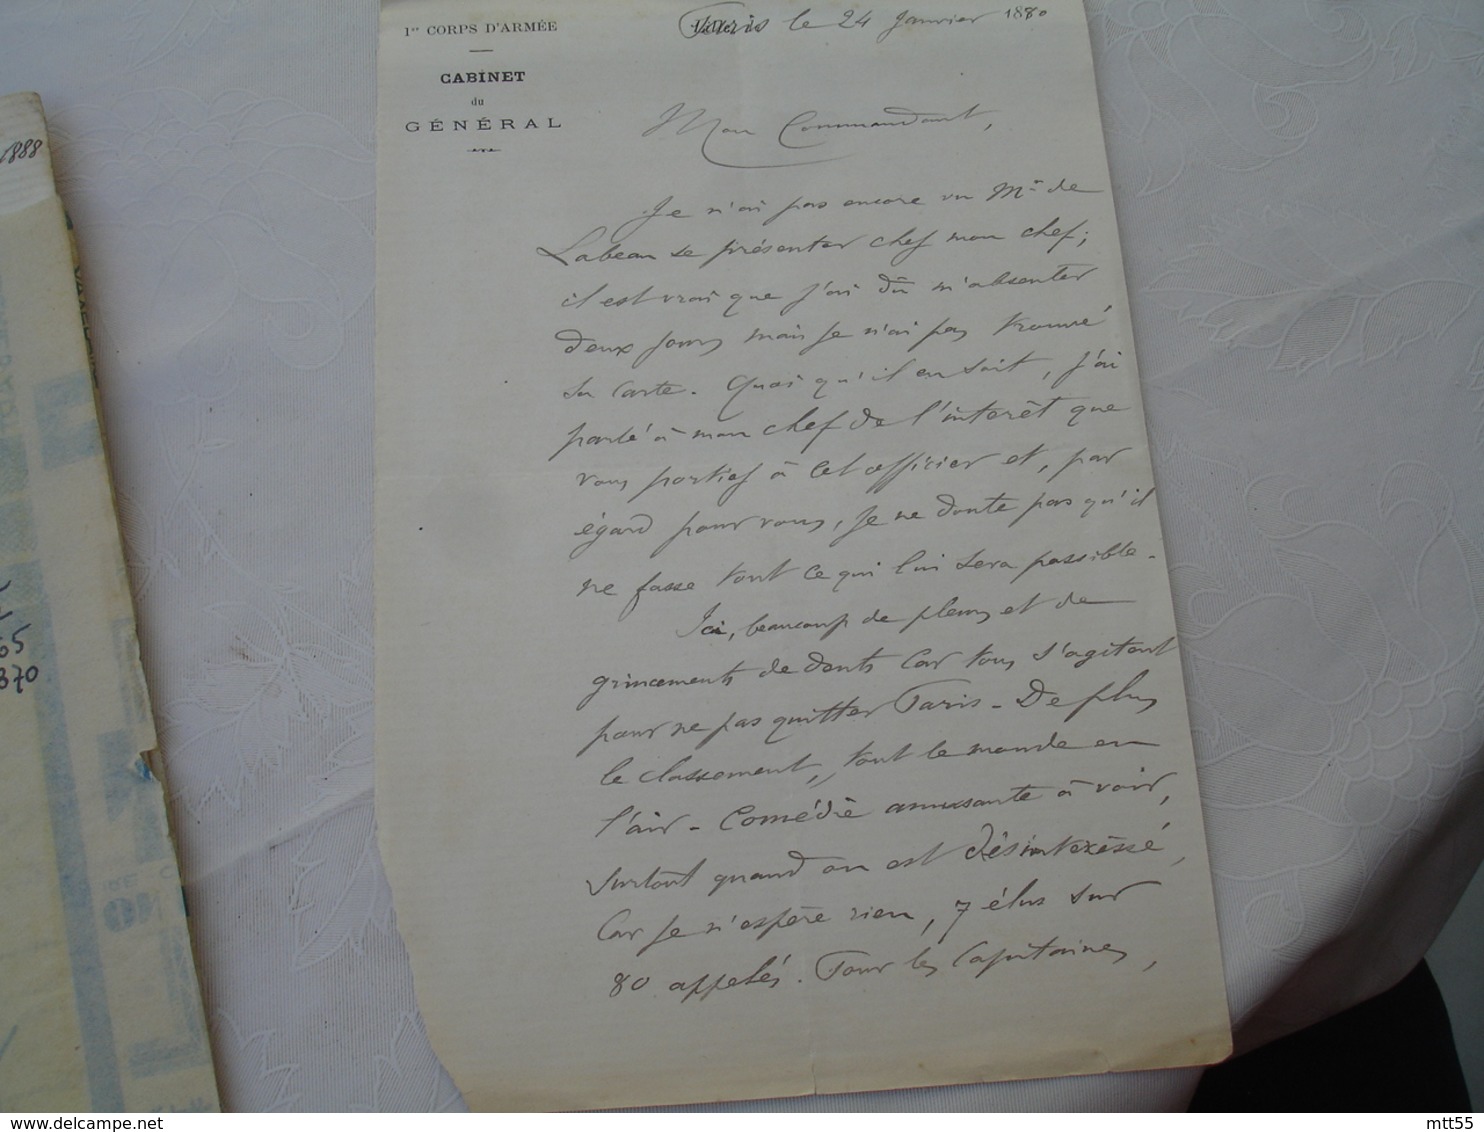 1er CORPS D'ARMÉE
CABINET
du
GÉNÉRAL
Paris le 24 Janvier 1880
Mon Commandant,
Je n'ai pas encore vu Mr de
Labeau se présenter chef mon chef;
il est vrai que j'ai dû m'absenter
deux jours mais je n'ai pas trouvé
sa carte. Quoi qu'il en soit, j'ai
parlé à mon chef de l'intérêt que
vous portief à cet officier et, par
égard pour vous, je ne doute pas qu'il
ne fasse tout ce qui lui sera possible.
Ici, beaucoup de pleurs et de
grincements de dents car tous s'agitent
pour ne pas quitter Paris. De plus
le classement, tout le monde en
l'air. Comédie amusante à voir,
surtout quand on est désintéressé,
car je n'espère rien, 7 élus sur
80 appelés. Pour les Capitaines,
1888
65
870